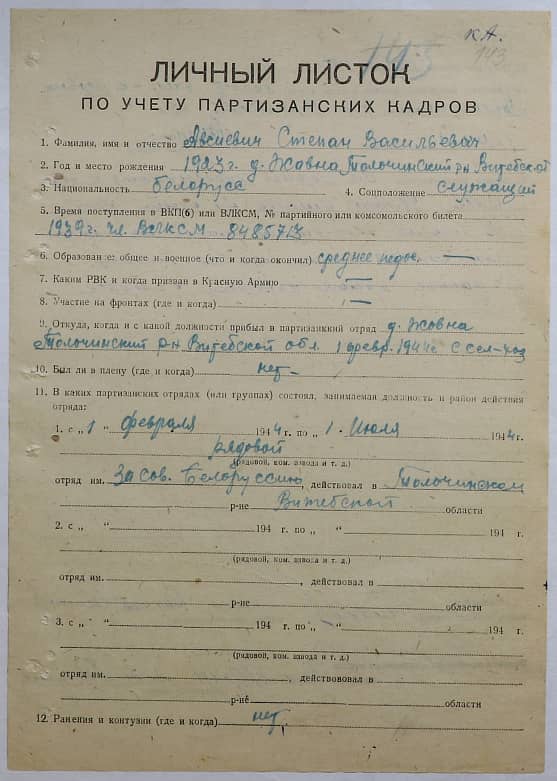 к А.
143
143
ЛИЧНЫЙ ЛИСТОК
ПО УЧЕТУ ПАРТИЗАНСКИХ КАДРОВ
1. Фамилия, имя и отчество Авсиевич Степан Васильевич
2. Год и место рождения 1923 г. д. Жовна Толочинский рн Витебской
3. Национальность белорусс 4. Соцположение служащий
5. Время поступления в ВКП(б) или ВЛКСМ, № партийного или комсомольского билета
1939 г. чл. ВЛКСМ 8485713
6. Образование общее и военное (что и когда окончил) среднее —
7. Каким РВК и когда призван в Красную Армию —
8. Участие на фронтах (где и когда) —
9. Откуда, когда и с какой должности прибыл в партизанский отряд д. Жовна
Толочинский рн Витебской обл. 1 февр. 1944 г с сел-хоз
10. Был ли в плену (где и когда) нет
11. В каких партизанских отрядах (или группах) состоял, занимаемая должность и район действия
отряда:
1. с „ 1 " февраля 1944 г. по „ 1 . Июля 1944 г.
рядовой
(рядовой, ком. взвода и т. д.)
отряд им. За Сов. Белоруссию, действовал в Толочинском
р-не Витебской области
2. с „ " 194 г. по „ " 194 г.
(рядовой, ком. взвода и т. д.)
отряд им. , действовал в
р-не области
3. с „ " 194 г. по „ " 194 г.
(рядовой, ком. взвода и т. д.)
отряд им. , действововал в
р-не области
12. Ранения и контузии (где и когда) нет